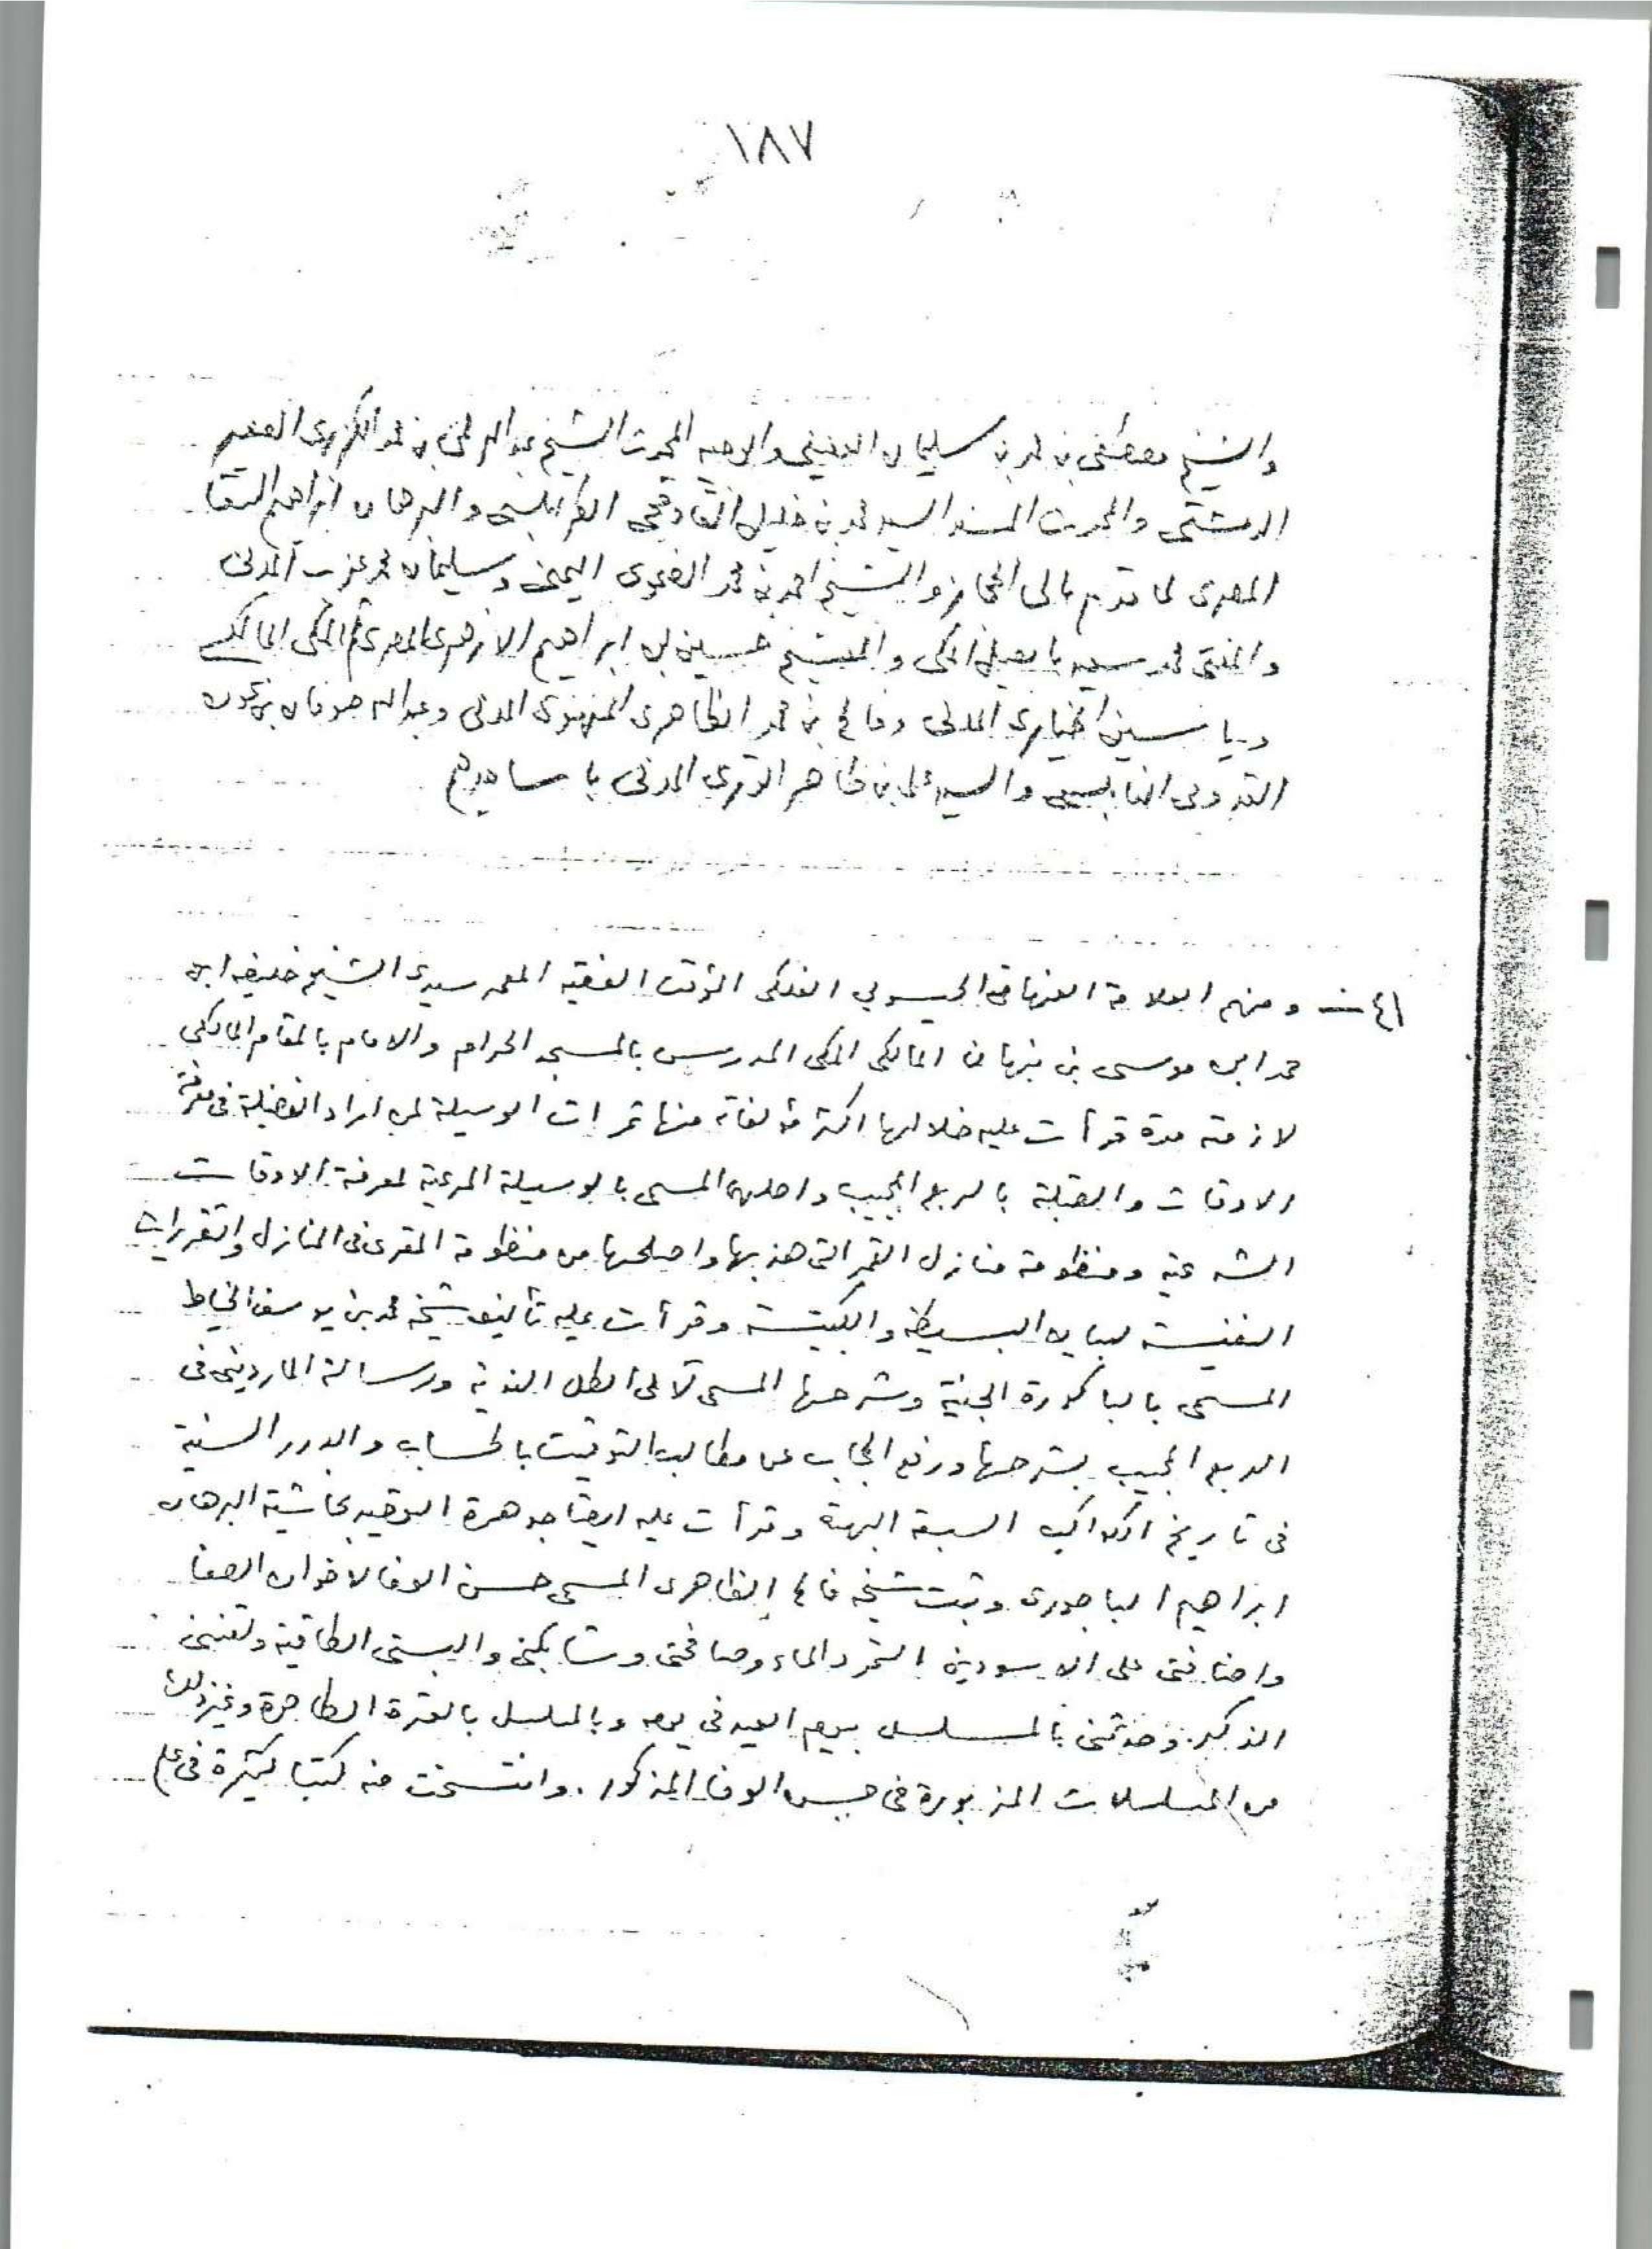 ١٨٧
والشيخ مصطفى بن محمد بن سليمان العفيفي والوجيه المحدث الشيخ عبد الرحمن بن محمد الكزبرى الصغير
الدمشقى والمحدث المسند السيد محمد بن خليل القاوقجى الطرابلسى والبرهان ابراهيم السقا
المصرى لما قدم الى الحجاز والشيخ احمد بن محمد اليمنى وسليمان محمد عزب المدنى
والمفتى محمد سعيد بابصيل المكى والشيخ حسين بن ابراهيم الازهرى المصرى ثم المكى المالكى
وياسين الخيارى المدنى وفالح بن محمد الظاهرى المهنوى المدنى وعبد الله صوفان بن عودة
القدومى النابلسى والسيد على بن ظاهر الوترى المدنى باسانيدهم
٤١ - ومنهم العلامة الفرضى الحيسوبي الفلكى المؤقت الفقيه المعمر سيدى الشيخ خليفه ابن
حمد ابن موسى بن نبهان المالكى المكى المدرس بالمسجد الحرام والامام بالمقام المالكى
لازمته مدة قرأت عليه خلالها اكثر مؤلفاته منها ثمرات الوسيلة لمن اراد الفضيلة فى معرفة
الاوقات والقبلة بالربع المجيب واصلها المسمى بالوسيلة المرعية لمعرفة الاوقات
الشرعية ومنظومة منازل القمر التى هذبها واصلحها من منظومة المقرى فى المنازل والتقريرات
النفيسة لبيان البسيطة والكبيسة وقرأت عليه تأليف شيخه محمد بن يوسف الخياط
المسمى بالباكورة الجنية وشرحها المسمى لآلئ الطل الندية ورسالة الماردينى فى
الربع المجيب بشرحها ورفع الحجاب عن مطالب التوقيت بالحساب والدرر السنية
فى تاريخ الكواكب السبعة البهية وقرأت عليه ايضا جوهرة التوحيد بحاشية البرهان
ابراهيم الباجورى وثبت شيخه فالح الظاهرى المسمى حسن الوفا لاخوان الصفا
واضافنى على الاسودين التمر والماء وصافحنى وشابكنى والبسنى الطاقية ولقننى
الذكر. وحدثنى بالمسلسل بيوم العيد فى يومه وبالمسلسل بالعترة الطاهرة وغير ذلك
من المسلسلات المزبورة فى حسن الوفا المذكور. وانتسخت منه كتبا كثيرة فى علم